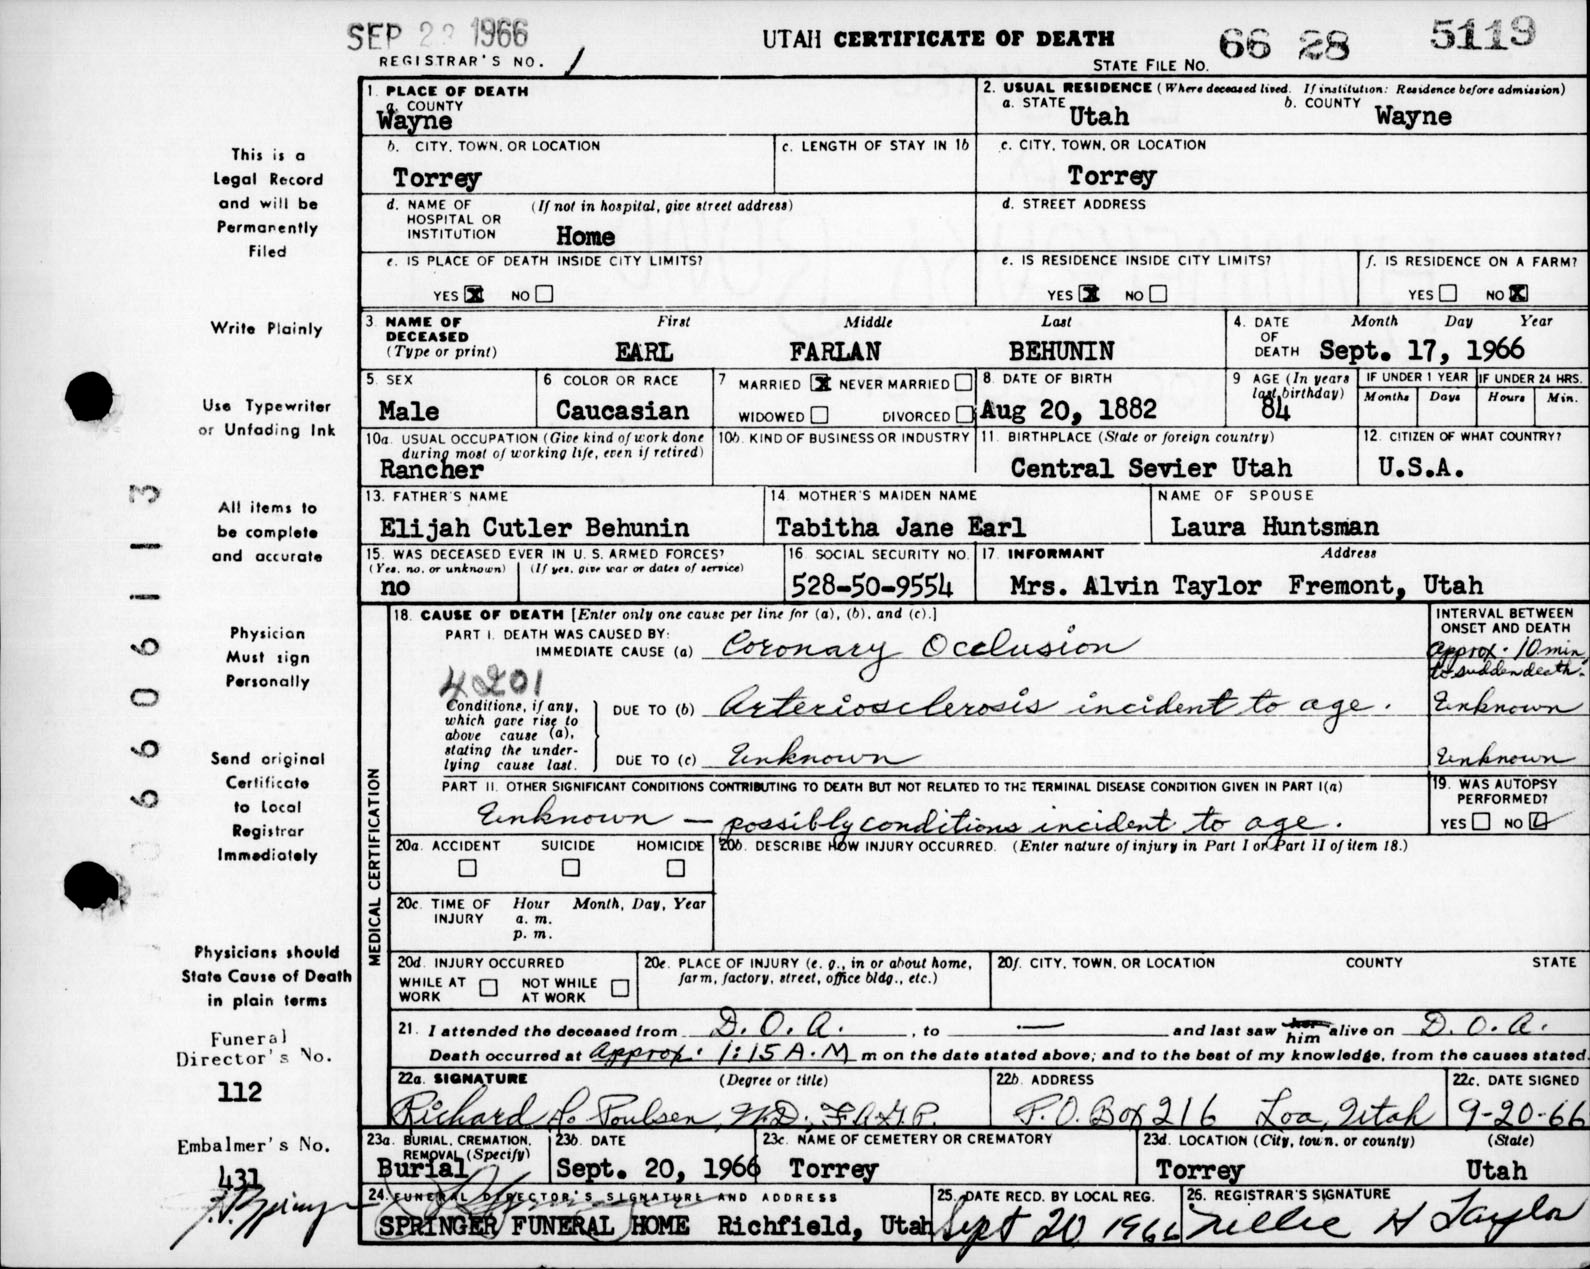 SEP 23 1966
UTAH CERTIFICATE OF DEATH
66 28 5119
REGISTRAR'S NO. 1
STATE FILE NO.
This is a
Legal Record
and will be
Permanently
Filed
Write Plainly
Use Typewriter
or Unfading Ink
All items to
be complete
and accurate
Physician
Must sign
Personally
Send original
Certificate
to Local
Registrar
Immediately
Physicians should
State Cause of Death
in plain terms
Funeral
Director's No.
112
Embalmer's No.
431
66061113
1. PLACE OF DEATH
a. COUNTY
Wayne
2. USUAL RESIDENCE (Where deceased lived. If institution: Residence before admission)
a. STATE Utah b. COUNTY Wayne
b. CITY, TOWN, OR LOCATION
Torrey
c. LENGTH OF STAY IN 1b
c. CITY, TOWN, OR LOCATION
Torrey
d. NAME OF HOSPITAL OR INSTITUTION (If not in hospital, give street address)
Home
d. STREET ADDRESS
e. IS PLACE OF DEATH INSIDE CITY LIMITS?
YES X NO
e. IS RESIDENCE INSIDE CITY LIMITS?
YES X NO
f. IS RESIDENCE ON A FARM?
YES NO X
3. NAME OF DECEASED (Type or print) First Middle Last
EARL FARLAN BEHUNIN
4. DATE OF DEATH Month Day Year
Sept. 17, 1966
5. SEX
Male
6 COLOR OR RACE
Caucasian
7 MARRIED X NEVER MARRIED
WIDOWED DIVORCED
8. DATE OF BIRTH
Aug 20, 1882
9 AGE (In years last birthday)
84
IF UNDER 1 YEAR
Months Days
IF UNDER 24 HRS.
Hours Min.
10a. USUAL OCCUPATION (Give kind of work done during most of working life, even if retired)
Rancher
10b. KIND OF BUSINESS OR INDUSTRY
11. BIRTHPLACE (State or foreign country)
Central Sevier Utah
12. CITIZEN OF WHAT COUNTRY?
U.S.A.
13. FATHER'S NAME
Elijah Cutler Behunin
14. MOTHER'S MAIDEN NAME
Tabitha Jane Earl
NAME OF SPOUSE
Laura Huntsman
15. WAS DECEASED EVER IN U. S. ARMED FORCES?
(Yes, no, or unknown) (If yes, give war or dates of service)
no
16. SOCIAL SECURITY NO.
528-50-9554
17. INFORMANT Address
Mrs. Alvin Taylor Fremont, Utah
MEDICAL CERTIFICATION
18. CAUSE OF DEATH [Enter only one cause per line for (a), (b), and (c).]
PART I. DEATH WAS CAUSED BY:
IMMEDIATE CAUSE (a) Coronary Occlusion
INTERVAL BETWEEN ONSET AND DEATH
approx. 10 min
to sudden death.
4201
Conditions, if any, which gave rise to above cause (a), stating the underlying cause last.
DUE TO (b) Arteriosclerosis incident to age. Unknown
DUE TO (c) Unknown Unknown
PART II. OTHER SIGNIFICANT CONDITIONS CONTRIBUTING TO DEATH BUT NOT RELATED TO THE TERMINAL DISEASE CONDITION GIVEN IN PART I(a)
Unknown — possibly conditions incident to age.
19. WAS AUTOPSY PERFORMED?
YES NO
20a. ACCIDENT SUICIDE HOMICIDE
20b. DESCRIBE HOW INJURY OCCURRED. (Enter nature of injury in Part I or Part II of item 18.)
20c. TIME OF INJURY Hour Month, Day, Year
a. m.
p. m.
20d. INJURY OCCURRED
WHILE AT WORK NOT WHILE AT WORK
20e. PLACE OF INJURY (e. g., in or about home, farm, factory, street, office bldg., etc.)
20f. CITY, TOWN, OR LOCATION COUNTY STATE
21. I attended the deceased from D.O.A., to — and last saw her him alive on D.O.A.
Death occurred at approx. 1:15 A.M m on the date stated above; and to the best of my knowledge, from the causes stated.
22a. SIGNATURE (Degree or title)
Richard Poulsen, M.D., F.A.G.P.
22b. ADDRESS
P.O. Box 216 Loa, Utah
22c. DATE SIGNED
9-20-66
23a. BURIAL, CREMATION, REMOVAL (Specify)
Burial
23b. DATE
Sept. 20, 1966
23c. NAME OF CEMETERY OR CREMATORY
Torrey
23d. LOCATION (City, town, or county) (State)
Torrey Utah
24. FUNERAL DIRECTOR'S SIGNATURE AND ADDRESS
SPRINGER FUNERAL HOME Richfield, Utah
25. DATE RECD. BY LOCAL REG.
Sept 20 1966
26. REGISTRAR'S SIGNATURE
Nellie H Taylor